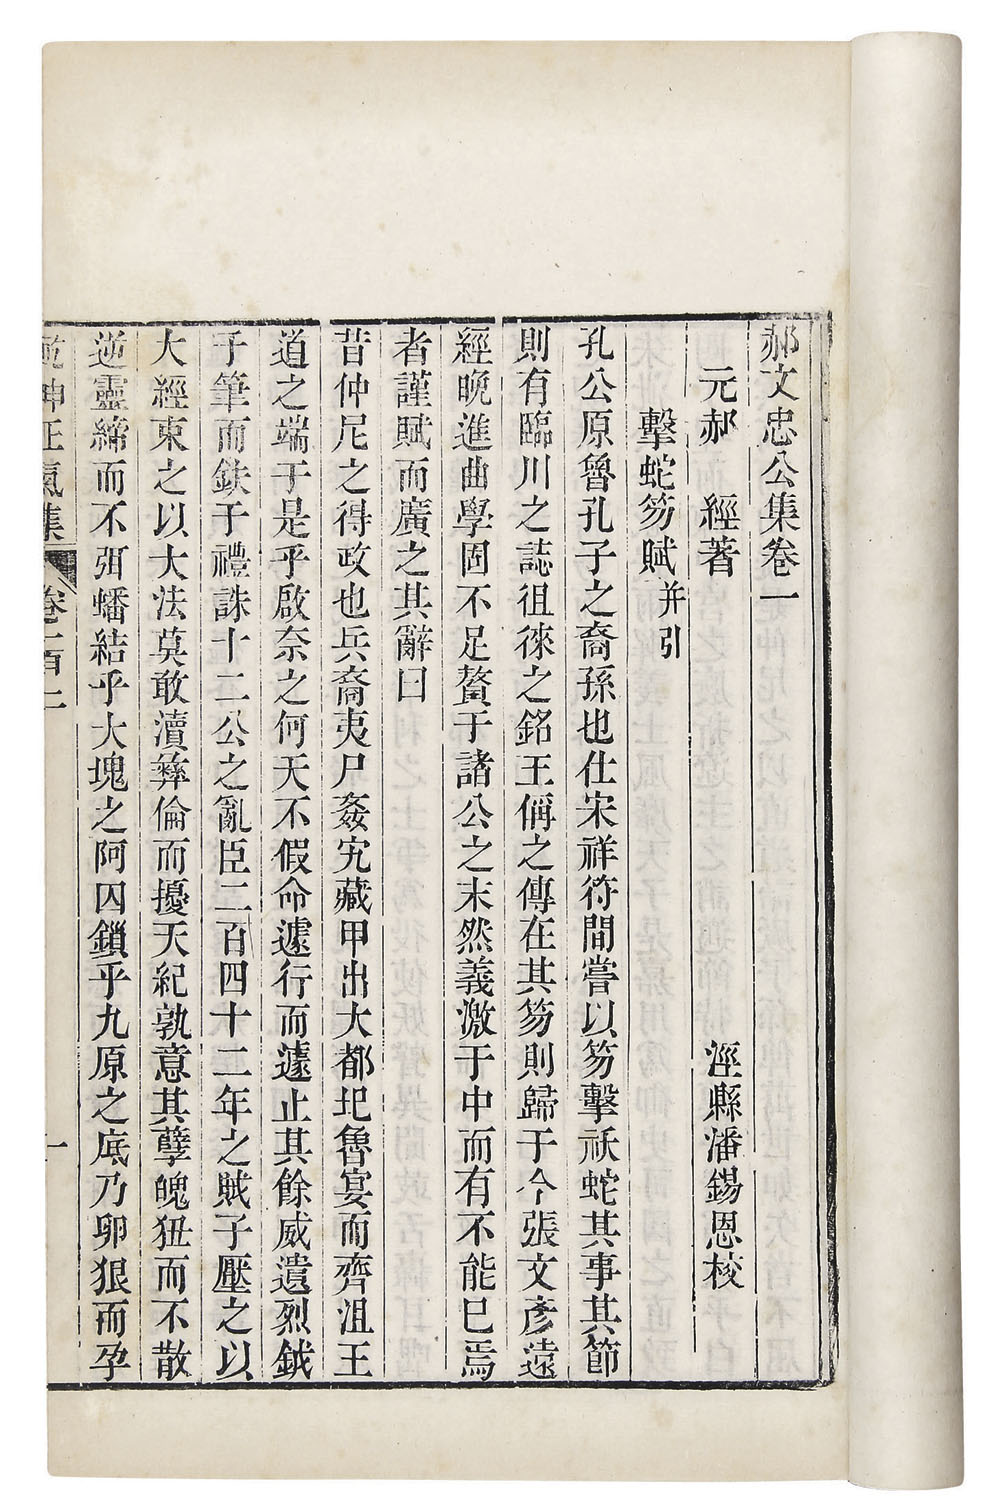 郝文忠公集卷一
元郝　經著　涇縣潘錫恩校
擊蛇笏賦并引
孔公原魯孔子之裔孫也仕宋祥符間嘗以笏擊祅蛇其事其節
則有臨川之誌徂徠之銘王偁之傳在其笏則歸于今張文彥遠
經晚進曲學固不足贅于諸公之末然義激于中而有不能已焉
者謹賦而廣之其辭曰
昔仲尼之得政也兵裔夷尸姦宄藏甲出大都圯魯宴而齊沮王
道之端于是乎啟奈之何天不假命遽行而遽止其餘威遺烈鉞
于筆而鈇于禮誅十二公之亂臣二百四十二年之賊子壓之以
大經束之以大法莫敢瀆彝倫而擾天紀孰意其孽魄狃而不散
逆靈締而不弭蟠結乎大塊之阿囚鎖乎九原之底乃卵狠而孕
乾坤正氣集　卷一百二　一